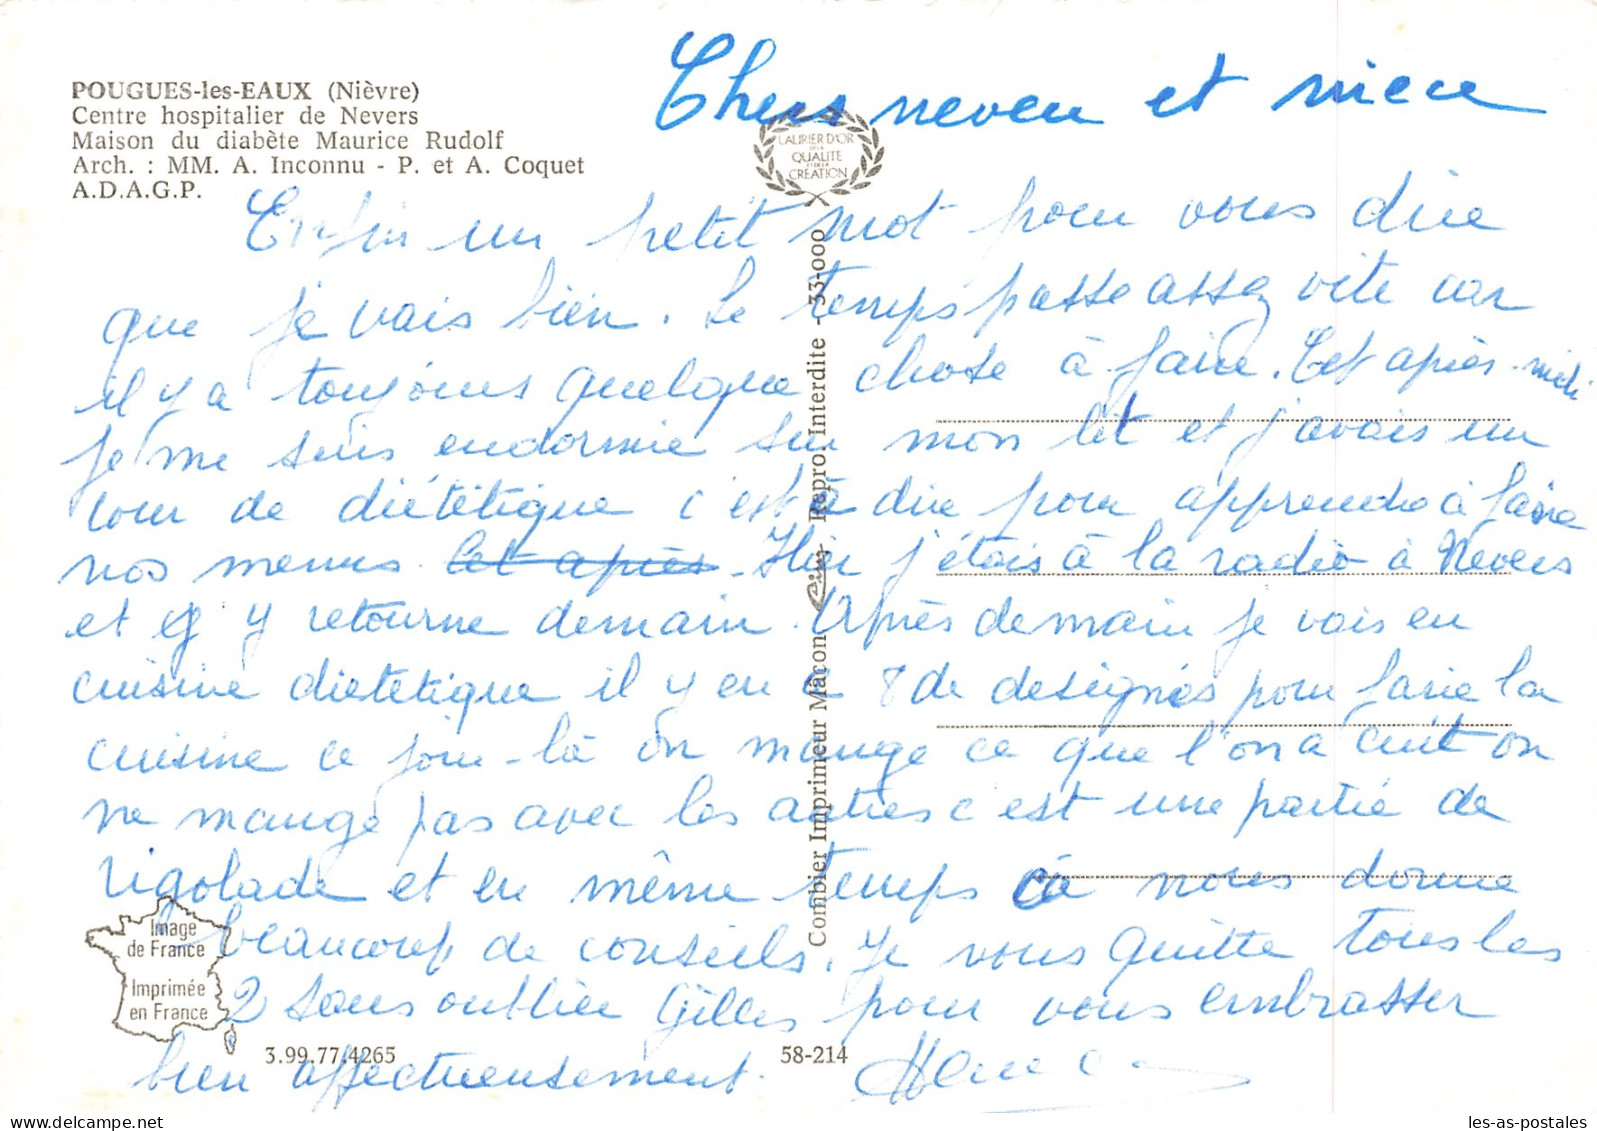 POUGUES-les-EAUX (Nièvre)
Centre hospitalier de Nevers
Maison du diabète Maurice Rudolf
Arch. : MM. A. Inconnu - P. et A. Coquet
A.D.A.G.P.
LAURIER D'OR
DE LA
QUALITE
ET DE LA
CREATION
Chers neveu et niece
Enfin un petit mot pour vous dire
que je vais bien. Le temps passe assez vite car
il y a toujours quelque chose à faire. Cet après-midi
je me suis endormie sur mon lit et j'avais un
cour de diététique c'est à dire pour apprendre à faire
nos menus cet après - Hier j'étais à la radio à Nevers
et j'y retourne demain. Après demain je vais en
cuisine dietetique il y en a 8 de designés pour faire la
cuisine ce jour-là on mange ce que l'on a cuit on
ne mange pas avec les autres c'est une partie de
rigolade et en même temps ça nous donne
beaucoup de conseils. Je vous quitte tous les
2 sans oublier Gilles pour vous embrasser
bien affectueusement.
Combier Imprimeur Mâcon Cim Repro. Interdite - 33-000
Image
de France
Imprimée
en France
3.99.77.4265
58-214
les-as-postales